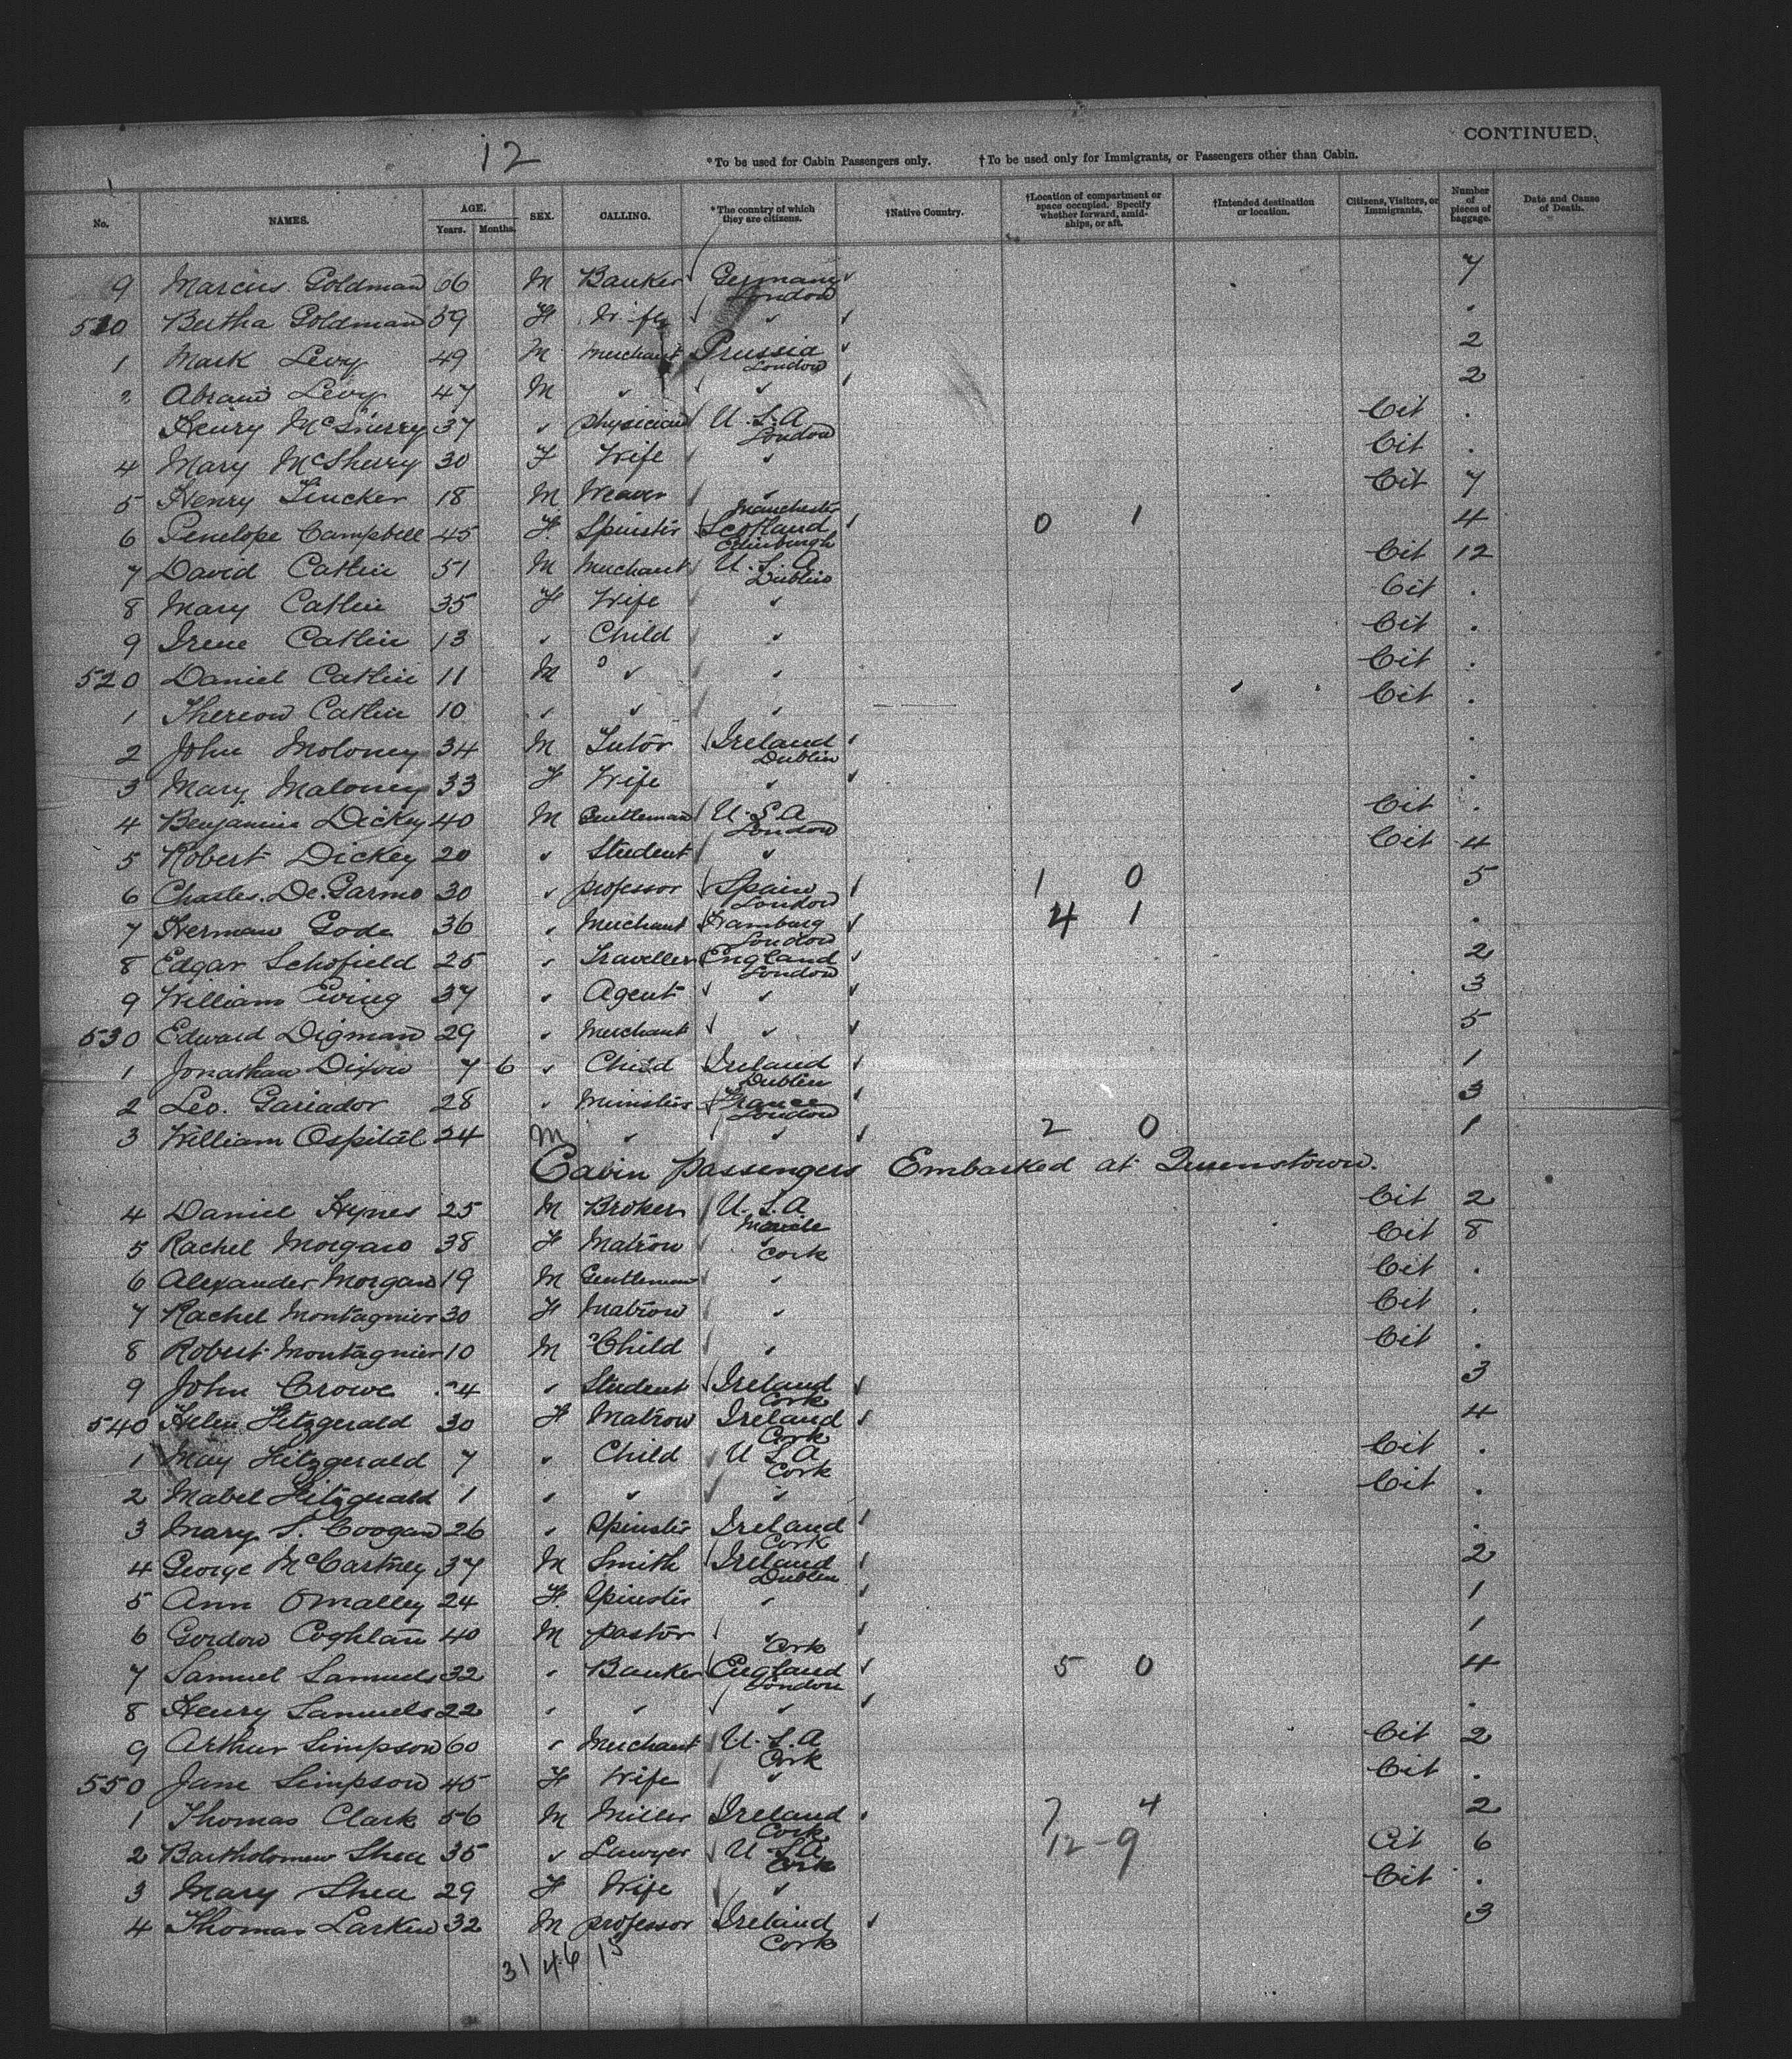 12
CONTINUED.
*To be used for Cabin Passengers only. †To be used only for Immigrants, or Passengers other than Cabin.
No. NAMES. AGE. Years. Months. SEX. CALLING. *The country of which they are citizens. †Native Country. †Location of compartment or space occupied. Specify whether forward, amidships, or aft. †Intended destination or location. Citizens, Visitors, or Immigrants. Number of pieces of baggage. Date and Cause of Death.
9 Marcus Goldman 66 M Banker Germany London 7
510 Bertha Goldman 59 F Wife " .
1 Mark Levy 49 M Merchant Prussia London 2
2 Abram Levy 47 M " " 2
Henry McSherry 37 " physician U.S.A London Cit .
4 Mary McSherry 30 F Wife " Cit .
5 Henry Tincker 18 M Weaver " Manchester Cit 7
6 Penelope Campbell 45 F. Spinster Scotland Edinburgh 0 1 4
7 David Catlin 51 M Merchant U.S.A Dublin Cit 12
8 Mary Catlin 35 F Wife " Cit .
9 Irene Catlin 13 " Child " Cit .
520 Daniel Catlin 11 M " " Cit .
1 Thereon Catlin 10 " " " Cit .
2 John Moloney 34 M Tutor Ireland Dublin .
3 Mary Maloney 33 F Wife " .
4 Benjamin Dickey 40 M Gentleman U.S.A London Cit .
5 Robert Dickey 20 " Student " Cit 4
6 Charles De Garmo 30 " professor Spain London 1 0 5
7 Herman Gode 36 " Merchant Hamburg London 4 1 .
8 Edgar Schofield 25 " Traveller England London 2
9 William Ewing 37 " Agent " 3
530 Edward Digman 29 " Merchant " 5
1 Jonathan Dixon 7 6 " Child Ireland Dublin 1
2 Leo. Gariador 28 " Minister France London 3
3 William Ospital 24 M " " 2 0 1
Cabin passengers Embarked at Queenstown.
4 Daniel Hynes 25 M Broker U.S.A Moville Cit 2
5 Rachel Morgan 38 F Matron " Cork Cit 8
6 Alexander Morgan 19 M Gentleman " Cit .
7 Rachel Montagnier 30 F Matron " Cit .
8 Robert Montagnier 10 M Child " Cit .
9 John Crowe 4 " Student Ireland Cork 3
540 Helen Fitzgerald 30 F Matron Ireland Cork 4
1 May Fitzgerald 7 " Child U S A Cork Cit .
2 Mabel Fitzgerald 1 " " " Cit .
3 Mary S. Coogan 26 " Spinster Ireland Cork .
4 George McCartney 37 M Smith Ireland Dublin 2
5 Ann OMalley 24 F. Spinster " 1
6 Gordon Coghlan 40 M pastor " Cork 1
7 Samuel Samuels 32 " Banker England London 5 0 4
8 Henry Samuels 22 " " " .
9 Arthur Simpson 60 " Merchant U.S.A Cork Cit 2
550 Jane Simpson 45 F Wife " Cit .
1 Thomas Clark 56 M Miller Ireland Cork 7 4 2
2 Bartholomew Shea 35 " Lawyer U S A Cork 12-9 Cit 6
3 Mary Shea 29 F Wife " Cit .
4 Thomas Larkin 32 M professor Ireland Cork 3
31 46 15